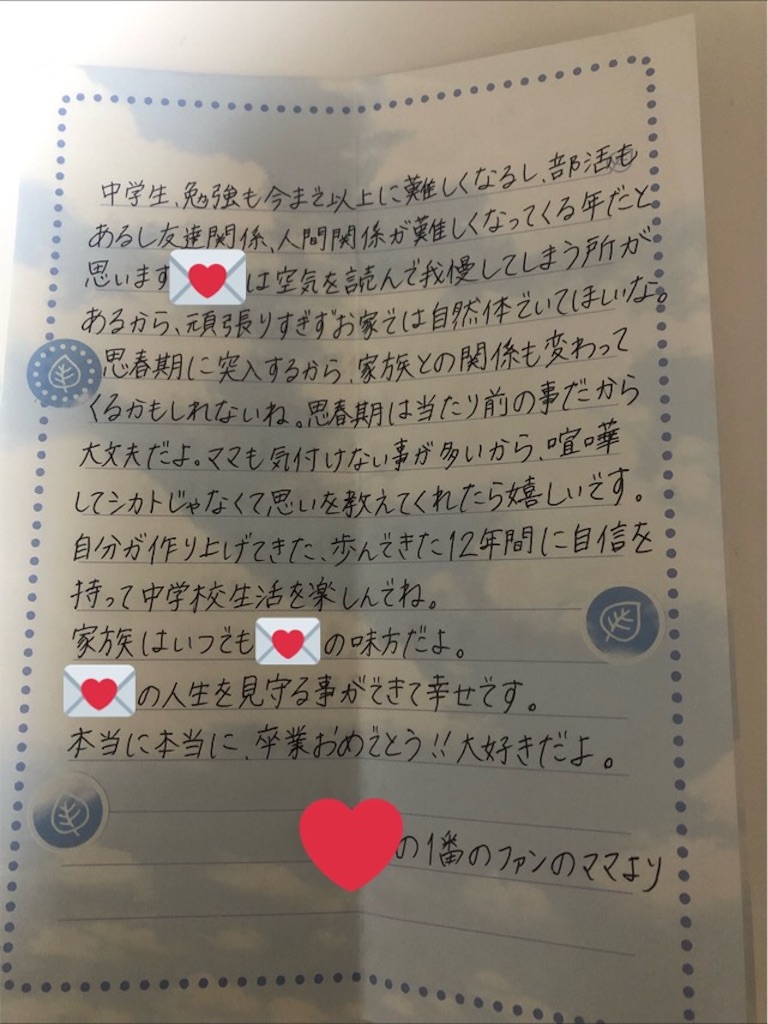 中学生、勉強も今まで以上に難しくなるし、部活も
あるし友達関係、人間関係が難しくなってくる年だと
思います は空気を読んで我慢してしまう所が
あるから、頑張りすぎずお家では自然体でいてほしいな。
思春期に突入するから、家族との関係も変わって
くるかもしれないね。思春期は当たり前の事だから
大丈夫だよ。ママも気付けない事が多いから、喧嘩
してシカトじゃなくて思いを教えてくれたら嬉しいです。
自分が作り上げてきた、歩んできた12年間に自信を
持って中学校生活を楽しんでね。
家族はいつでも の味方だよ。
の人生を見守る事ができて幸せです。
本当に本当に、卒業おめでとう!!大好きだよ。
の1番のファンのママより